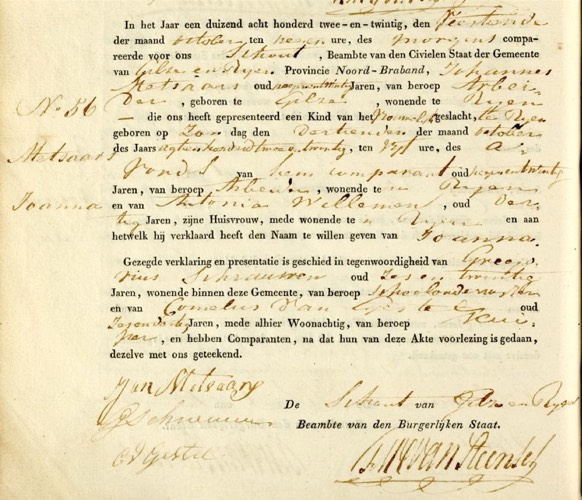 In het Jaar een duizend acht honderd twee-en-twintig, den Veertiende
der maand october ten negen ure, des morgens compa-
reerde voor ons Schout, Beambte van den Civielen Staat der Gemeente
van Gilze en Ryen Provincie Noord-Braband, Johannes
Metsaars oud Jaren, van beroep Arbei-
No 56
der, geboren te Gilze, wonende te Ryen
— die ons heeft gepresenteerd een Kind van het geslacht, te Ryen
geboren op Zon dag den dertienden der maand october
Metsaars
des Jaars achtienhonderd twee en twintig, ten Vyf ure, des A-
vonds van hem comparant oud Jaren, van beroep Arbeider, wonende te Ryen
Joanna
en van Antonia Willemen, oud der-
tig Jaren, zijne Huisvrouw, mede wonende te Ryen en aan
hetwelk hij verklaard heeft den Naam te willen geven van Joanna.
Gezegde verklaring en presentatie is geschied in tegenwoordigheid van Greego-
rius Schrauwen oud Zesentwintig
Jaren, wonende binnen deze Gemeente, van beroep Schoolonderwyzer
en van Cornelus van Gestel oud
Jaren, mede alhier Woonachtig, van beroep Kui-
per, en hebben Comparanten, na dat hun van deze Akte voorlezing is gedaan,
dezelve met ons geteekend.
Jan Metsaars
De Schout van Gilze en Ryen
Beambte van den Burgerlijken Staat.